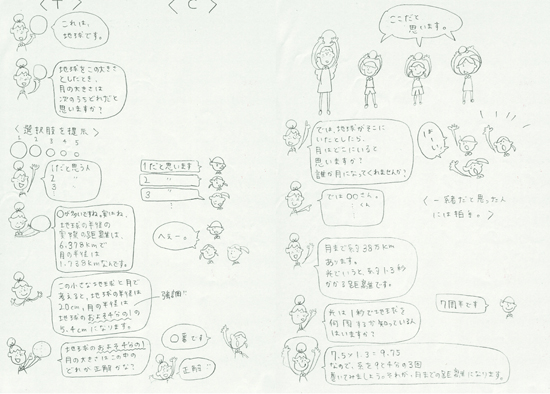 〈T〉
〈C〉
これは、
地球です。
地球をこの大きさ
としたとき、
月の大きさは
次のうちどれだと
思いますか?
〈選択肢を提示〉
1 2 3 4 5
1だと思う人
2 〃
3 〃
1だと思います
2 〃
3 〃
地球の半径の
6,378kmで
月の半径は
へぇー。
この小さな地球と月で
考えると、地球の半径は
20cm、月の半径は
地球のおよそ4分の1の
5.4cmになります。
地球のおよそ4分の1
月の大きさはこの中の
どれが正解かな?
〇番です
正解!!
ここだと
思います。
では、地球がそこに
いたとしたら、
月はどこにいると
思いますか?
誰か月になってくれませんか?
はーい
では〇〇さん。
〃 くん
〈一番だと思った人
には拍手。〉
月までおよそ38万km
あります。
光でいうと、およそ1.3秒
かかる距離です。
光は1秒で地球を
何周するか知っている人
はいますか?
7周半です
7.5×1.3=9.75
なので、糸を9と4分の3回
巻いてみましょう。それが、月までの距離になります。